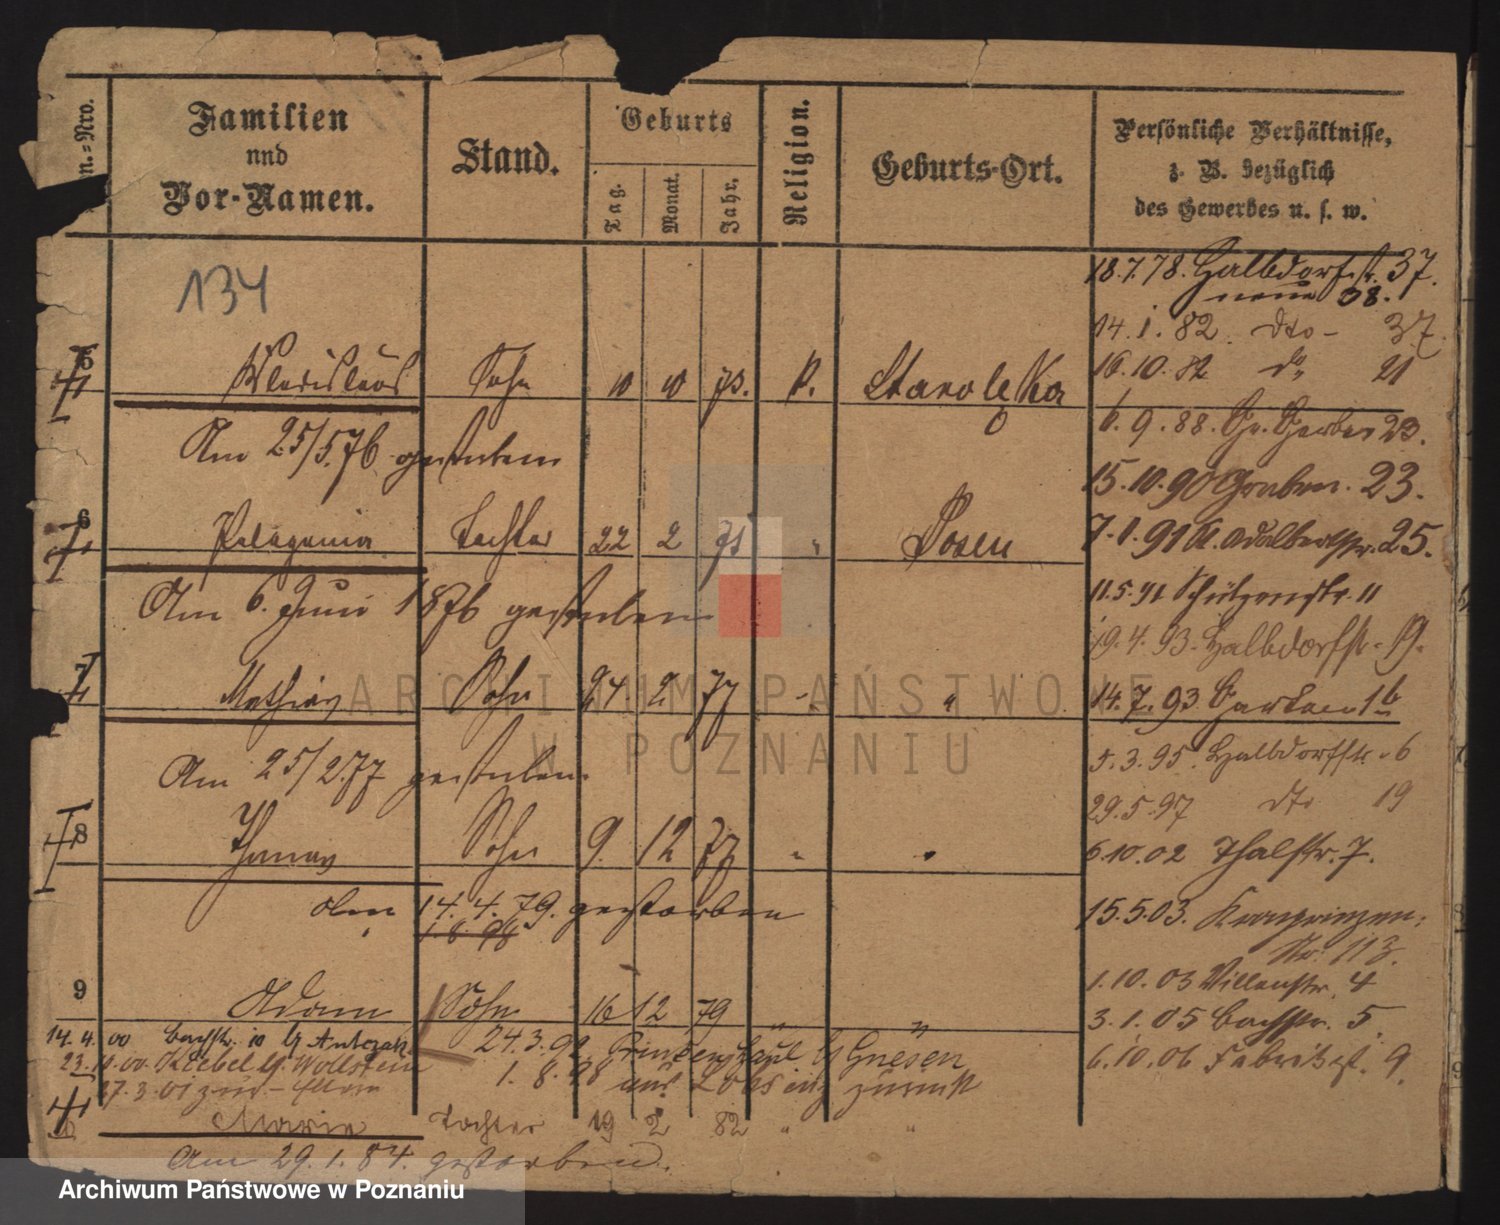 n.=Nro.
Familien
und
Vor-Namen.
Stand.
Geburts
Tag.
Monat.
Jahr.
Religion.
Geburts-Ort.
Persönliche Verhältnisse,
z. B. bezüglich
des Gewerbes u. s. w.
134
18.7.78. Halbdorfstr. 37.
neue 38.
14.1.82. dto - 37.
5 Wladislaus Sohn 10 10 73. k. Starolęka
16.10.82 do 21
Am 25/5.76 gestorben
6.9.88. Gr. Gerber 23.
15.10.90 Graben. 23.
6 Pelagonia Tochter 22 2 75 " Posen
7.1.91 kl. Adalbertstr. 25.
Am 6. Juni 1876 gestorben
11.5.91 Schützenstr. 11
19.4.93. Halbdorfstr. 19.
7 Mathias Sohn 24 2 77 " "
14.7.93 Garten 16
Am 25/2.77 gestorben
5.3.95. Halbdorfstr. 6
29.5.97 dto 19
8 Thomas Sohn 9. 12 77 " "
6.10.02 Thalstr. 7.
Am 14.4.79. gestorben
1.8.98
15.5.03. Kronprinzen-
Str. 113.
9 Adam Sohn 16 12 79 " "
1.10.03 Villenstr. 4
3.1.05 Bachstr. 5.
14.4.00 Bachstr. 10 b/ Antczak
24.3.92 b/ Gnesen
6.10.06 Fabrikst. 9.
23. .00. Kiebel b/ Wollstein
1.8.98 aus zurück
27.3.01 zur.
Marie Tochter 19 2 82 " "
Am 29.1.84. gestorben.
ARCHIWUM PAŃSTWOWE
W POZNANIU
Archiwum Państwowe w Poznaniu